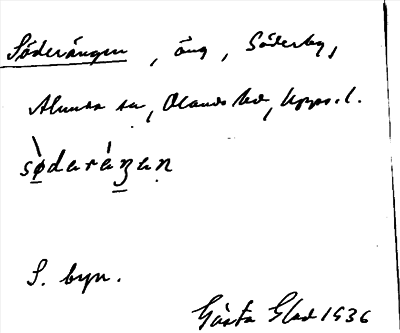 Söderängen, äng, Söderby,
Alunda sn, Olands hd, Upps. l.
sø̀daráŋan
S. byn.
Gösta Glad 1936